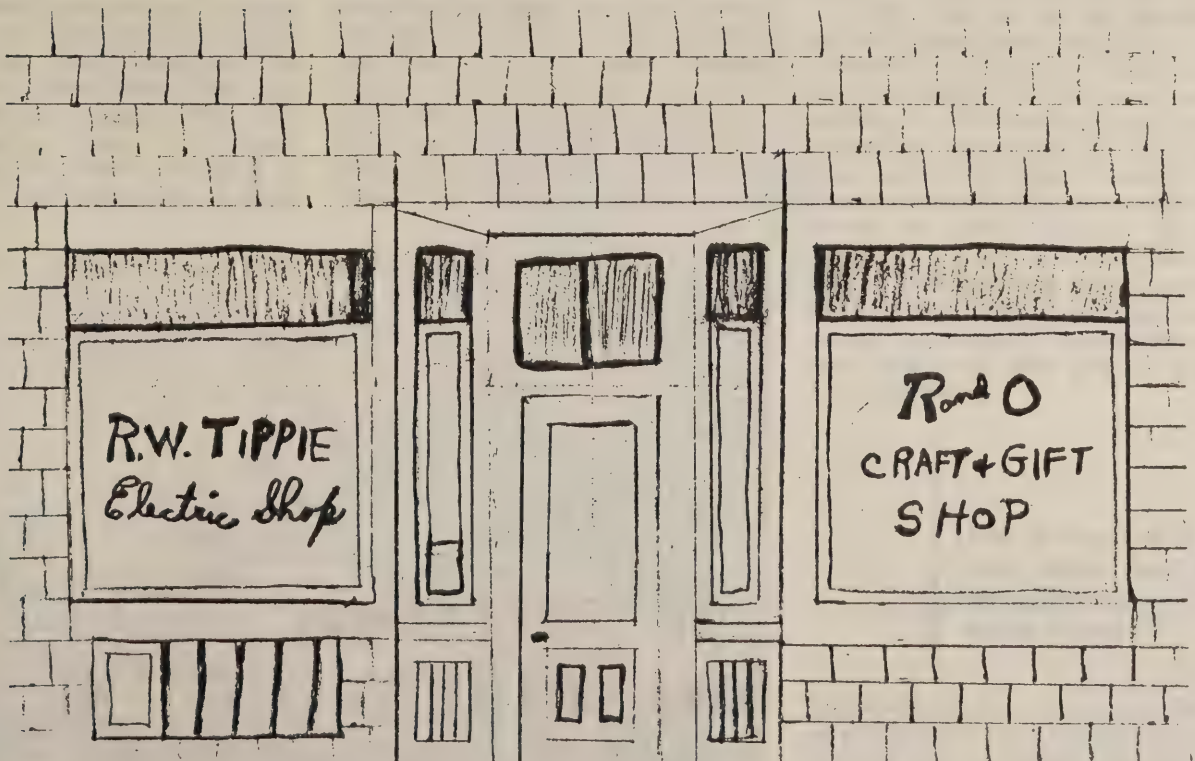 R.W. TIPPIE
Electric Shop
R and O
CRAFT & GIFT
SHOP